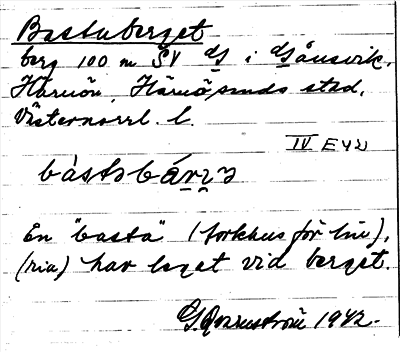 Bastuberget
berg 100 m SV g i Gånsvik,
Härnön, Härnösands stad,
Västernorrl. l.
IV E42
bàstobárɪɜ
En "basta" (torkhus för lin),
(ria) har legat vid berget.
1942.